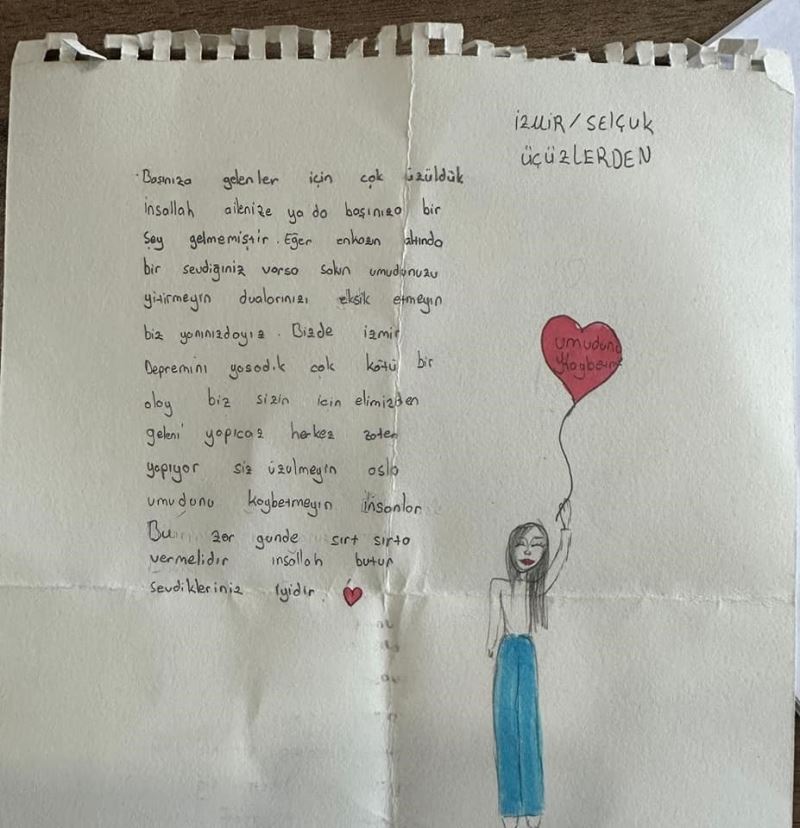 İZMİR / SELÇUK
ÜÇÜZLERDEN
Başınıza gelenler için çok üzüldük
inşallah ailenize ya da başınıza bir
şey gelmemiştir. Eğer enkazın altında
bir sevdiğiniz varsa sakın umudunuzu
yitirmeyin dualarınızı eksik etmeyin
biz yanınızdayız. Bizde izmir
Depremini yaşadık çok kötü bir
olay biz sizin için elimizden
geleni yapıcaz herkez zaten
yapıyor siz üzülmeyin asla
umudunu kaybetmeyin insanlar
Bu zor günde sırt sırta
vermelidir inşallah bütün
sevdikleriniz iyidir.
umudunu
Kaybetme